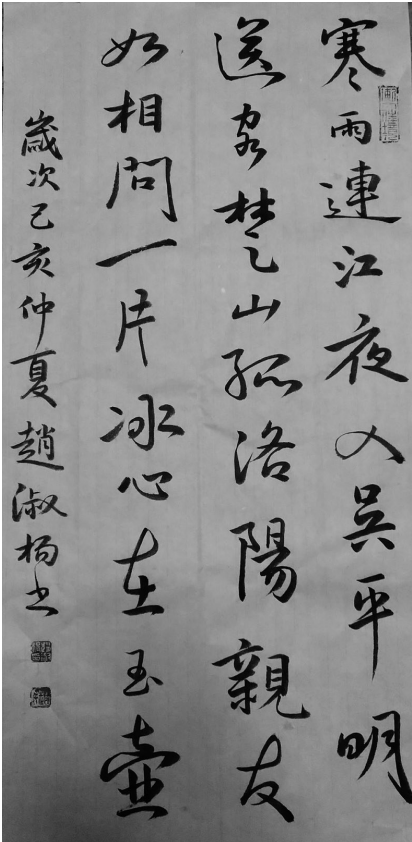 寒雨連江夜入吳平明
送客楚山孤洛陽親友
如相問一片冰心在玉壺
歲次己亥仲夏趙淑楊書